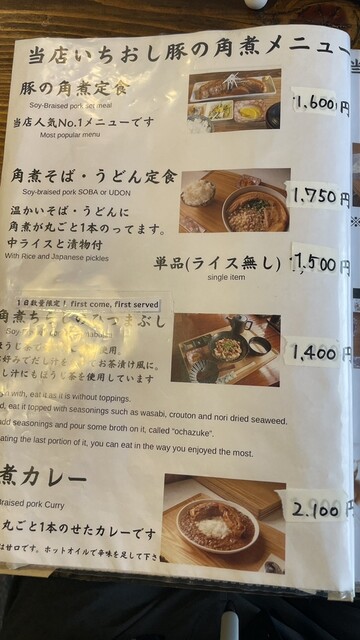 当店いちおし豚の角煮メニュー
豚の角煮定食
1,600円
Soy-Braised pork set meal
当店人気No.1メニューです
Most popular menu
角煮そば・うどん定食
1,750円
Soy-braised pork SOBA or UDON
温かいそば・うどんに
角煮が丸ごと1本のってます。
中ライスと漬物付
With Rice and Japanese pickles
単品(ライス無し)
1,500円
single item
1日数量限定! first come, first served
角煮ちらし ひつまぶし
1,400円
ほうじ茶 使用。
好みでだし汁を お茶漬け風に。
し汁にもほうじ茶を使用しています
with, eat it as it is without toppings.
eat it topped with seasonings such as wasabi, crouton and nori dried seaweed.
add seasonings and pour some broth on it, called "ochazuke".
eating the last portion of it, you can eat in the way you enjoyed the most.
煮カレー
2,100円
Braised pork Curry
丸ごと1本のせたカレーです
は甘口です。ホットオイルで辛味を足して下さ